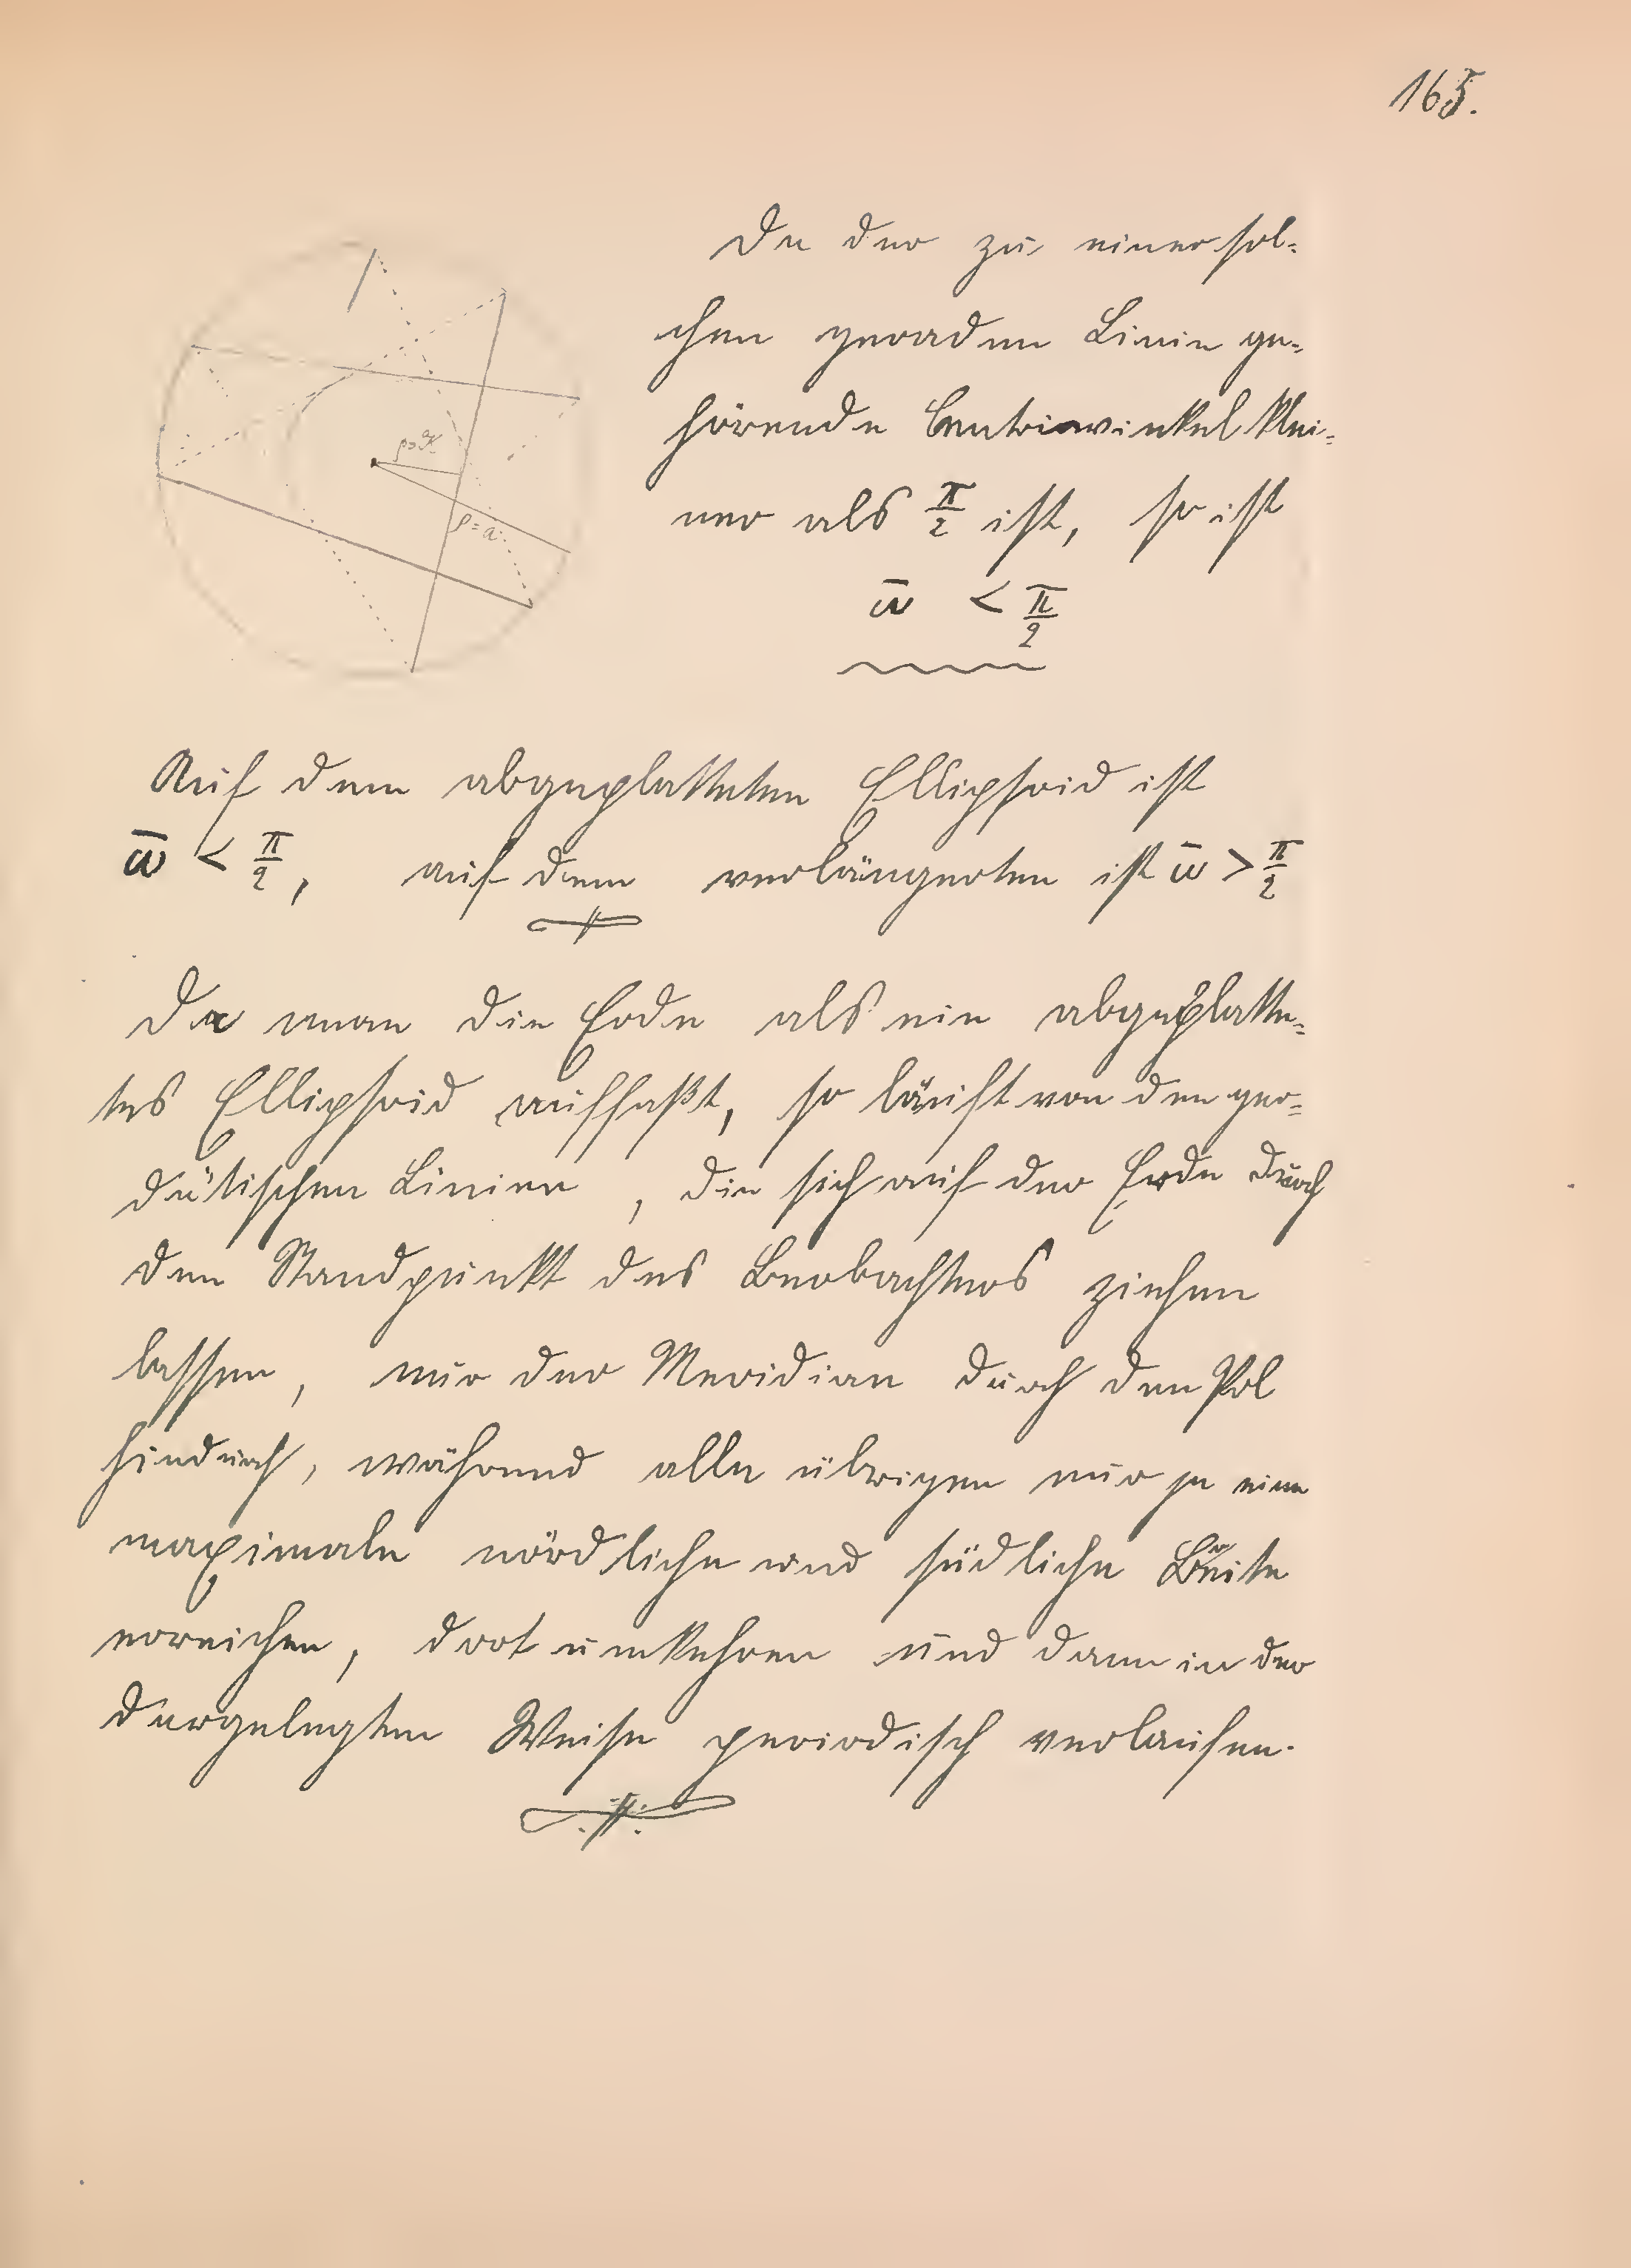 165.
Da der zu einer sol-
chen geraden Linie ge-
hörende Centriwinkel klei-
ner als π/2 ist, so ist
ω̄ < π/2
ρ=a
Auf dem abgeplatteten Ellipsoid ist
ω̄ < π/2, auf dem verlängerten ist ω̄ > π/2
Da man die Erde als ein abgeplatte-
tes Ellipsoid auffaßt, so läuft von den geo-
dätischen Linien, die sich auf der Erde durch
den Standpunkt des Beobachters ziehen
lassen, nur der Meridian durch den Pol
hindurch, während alle übrigen nur je eine
maximale nördliche und südliche Breite
erreichen, dort umkehren und dann in der
dargelegten Weise periodisch verlaufen.